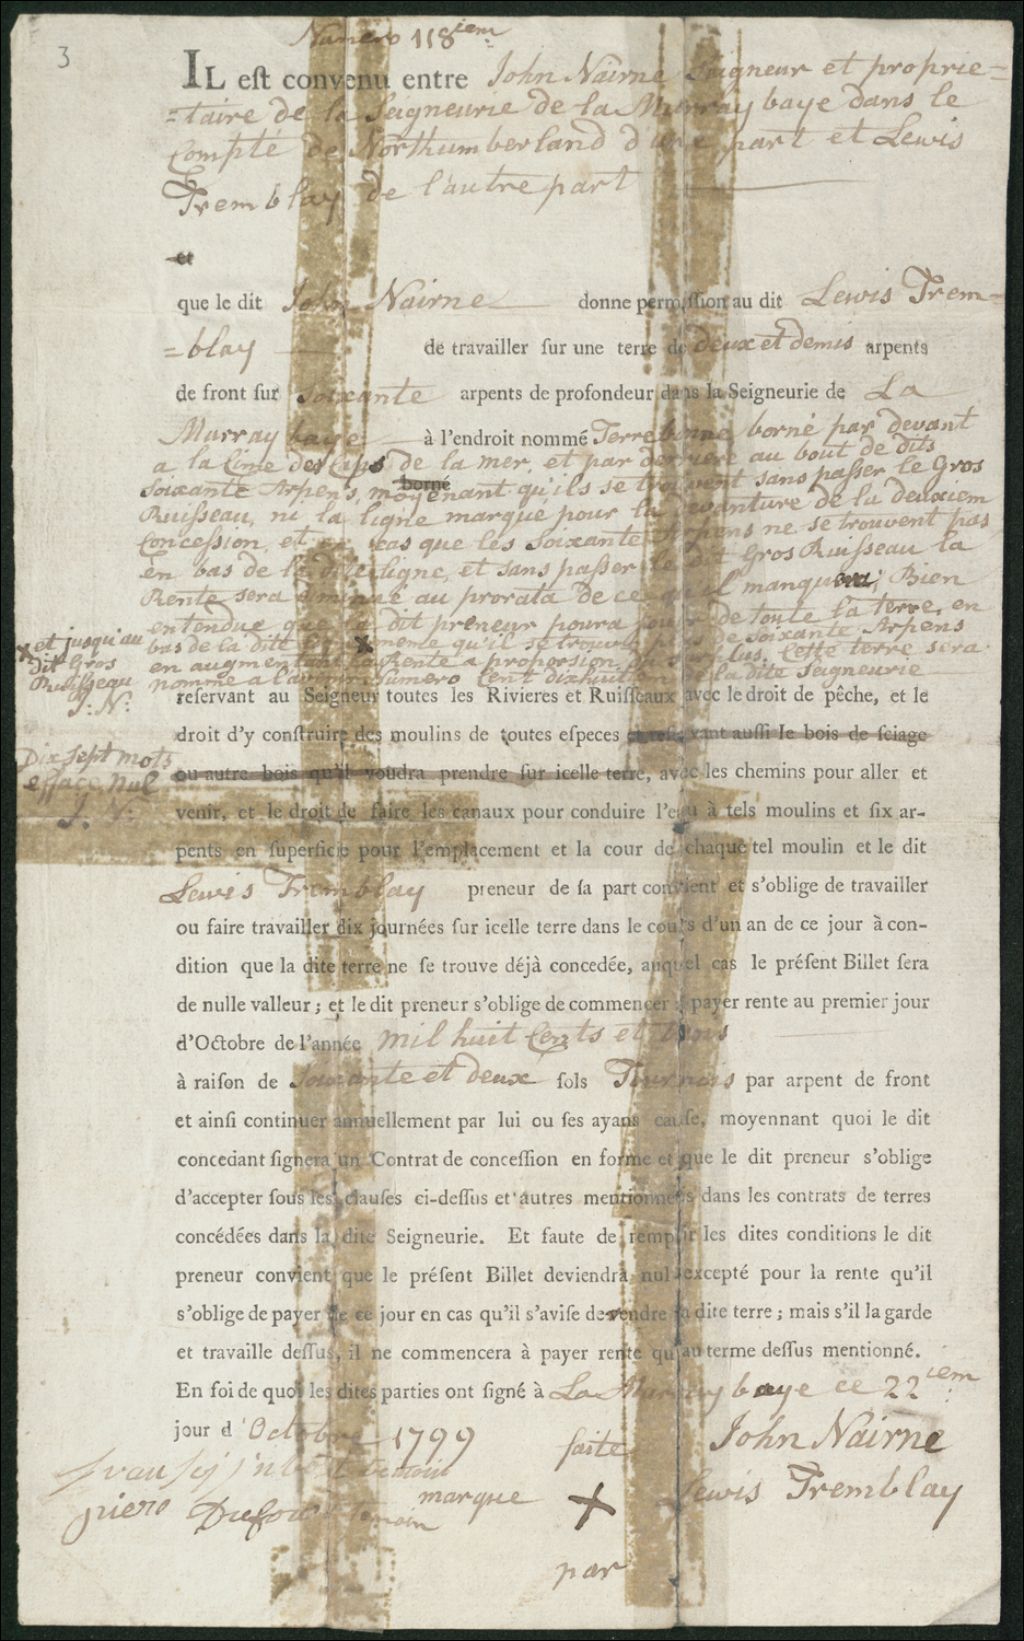 3
Numero 118iem
IL eſt convenu entre John Nairne Seigneur et proprie=
=taire de la Seigneurie de la Murray baye dans le
Compté de Northumberland d'une part et Lewis
Tremblay de l'autre part
et
que le dit John Nairne donne permiſſion au dit Lewis Trem=
=blay de travailler ſur une terre de deux et demis arpents
de front ſur Soixante arpents de profondeur dans la Seigneurie de La
Murray baye à l'endroit nommé Terrebonne borné par devant
a la Cime des Caps de la mer, et par derriere au bout de dits
borné
Soixante Arpens, moyenant qu'ils se trouvent sans paſser le Gros
Ruiſseau, ni la ligne marque pour la devanture de la deuxiem
Conceſsion, et en cas que les Soixante Arpens ne se trouvent pas
en bas de la dite ligne, et sans paſser le dit Gros Ruiſseau la
Rente sera diminué au prorata de ce qu'il manquera; Bien
entendue que le dit preneur poura jouir de toute la terre, en
bas de la dite ligne x meme qu'il se trouve plus de Soixante Arpens
en augmentant la Rente a proporsion du surplus. Cette terre sera
nommé a l'avenir Numero Cent dixhuitiem de la dite Seigneurie
x et jusqu'au
dit Gros
Ruiſseau
J: N:
reſervant au Seigneur toutes les Rivieres et Ruiſſeaux avec le droit de pêche, et le
droit d'y conſtruire des moulins de toutes eſpeces et reſervant auſſi le bois de ſciage
ou autre bois qu'il voudra prendre ſur icelle terre, avec les chemins pour aller et
Dix Sept mots
effacé Nul
J. N:
venir, et le droit de faire les canaux pour conduire l'eau à tels moulins et ſix ar-
pents en ſuperficie pour l'emplacement et la cour de chaque tel moulin et le dit
Lewis Tremblay preneur de ſa part convient et s'oblige de travailler
ou faire travailler dix journées ſur icelle terre dans le cours d'un an de ce jour à con-
dition que la dite terre ne ſe trouve déjà concedée, auquel cas le préſent Billet ſera
de nulle valleur; et le dit preneur s'oblige de commencer à payer rente au premier jour
d'Octobre de l'année mil huit Cents et trois
à raiſon de Soixante et deux ſols Tournois par arpent de front
et ainſi continuer annuellement par lui ou ſes ayans cauſe, moyennant quoi le dit
concedant ſignera un Contrat de conceſſion en forme et que le dit preneur s'oblige
d'accepter ſous les clauſes ci-deſſus et autres mentionnées dans les contrats de terres
concédées dans la dite Seigneurie. Et faute de remplir les dites conditions le dit
preneur convient que le préſent Billet deviendra nul excepté pour la rente qu'il
s'oblige de payer de ce jour en cas qu'il s'aviſe de vendre ſa dite terre; mais s'il la garde
et travaille deſſus, il ne commencera à payer rente qu'au terme deſſus mentionné.
En foi de quoi les dites parties ont ſigné à La Murray baye ce 22iem
jour d'Octobre 1799
faite John Nairne
temoin
marque X Lewis Tremblay
piero Dufour temoin
par